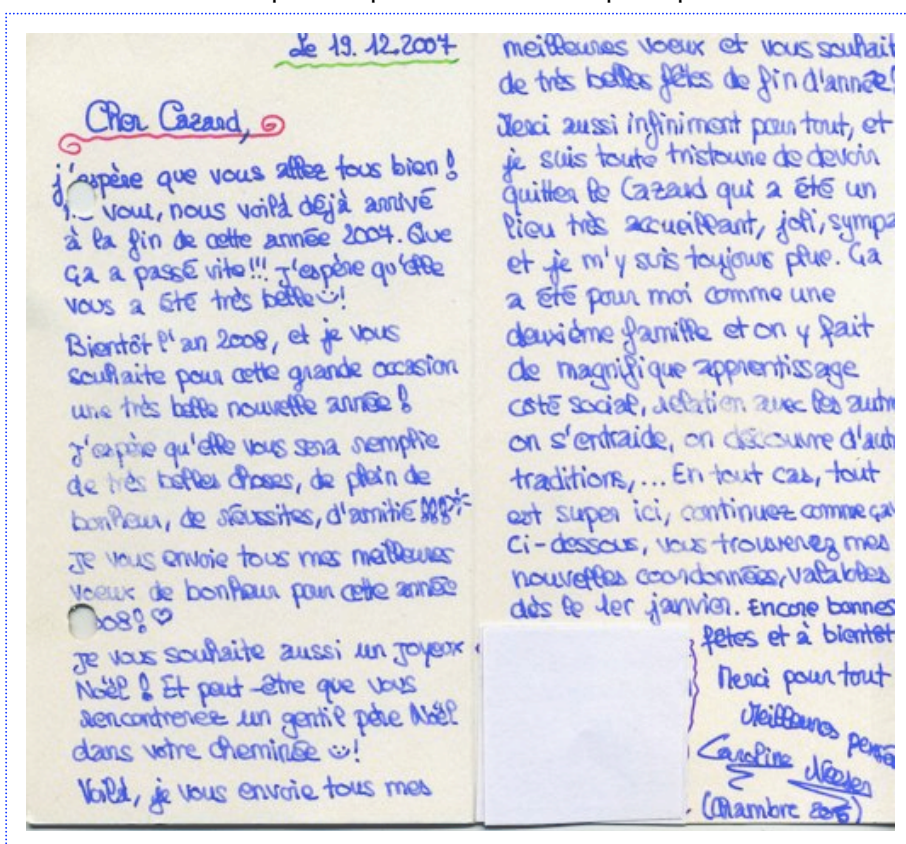 Le 19.12.2007
Cher Cazard,
j'espère que vous allez tous bien !
vous, nous voilà déjà arrivé
à la fin de cette année 2007. Que
ça a passé vite!!! J'espère qu'elle
vous a été très belle !
Bientôt l'an 2008, et je vous
souhaite pour cette grande occasion
une très belle nouvelle année !
J'espère qu'elle vous sera remplie
de très belles choses, de plein de
bonheur, de réussites, d'amitié !!!
Je vous envoie tous mes meilleures
voeux de bonheur pour cette année
008! ♡
Je vous souhaite aussi un joyeux
Noël ! Et peut-être que vous
rencontrerez un gentil père Noël
dans votre cheminée !
Voilà, je vous envoie tous mes
meilleures voeux et vous souhait
de très belles fêtes de fin d'année!
Merci aussi infiniment pour tout, et
je suis toute tristoune de devoir
quitter le Cazard qui a été un
lieu très accueillant, joli, sympa
et je m'y suis toujours plue. Ça
a été pour moi comme une
deuxième famille et on y fait
de magnifique apprentissage
coté social, relation avec les autre
on s'entraide, on découvre d'aut
traditions,... En tout cas, tout
est super ici, continuez comme ça
Ci-dessous, vous trouverez mes
nouvelles coordonnées, valables
dès le 1er janvier. Encore bonnes
fêtes et à bientôt
Merci pour tout
Meilleures pensé
Caroline
(Chambre